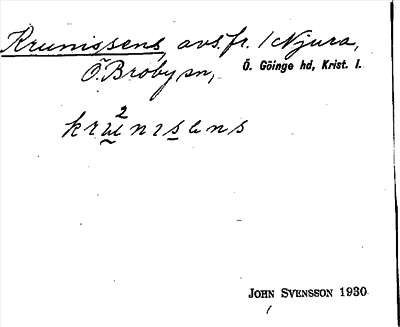 Krunissens, avs. fr. 1 Njura,
Ö. Broby sn, Ö. Göinge hd, Krist. l.
kru²nisens
JOHN SVENSSON 1930